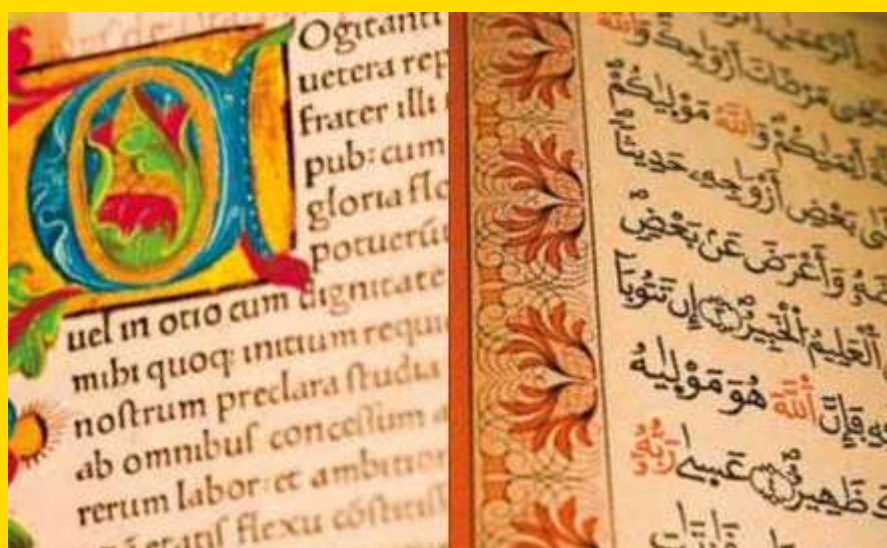 Ogitanti
uetera rep
frater illi
pub: cum
gloria flo
potuerũt
uel in otio cum dignitate
mihi quoq: initium requi
noſtrum preclara ſtudia
ab omnibuſ conceſſum a
rerum labor: et ambition
etatiſ flexu cõſtitiſſ
مَرْضَاتَ أَزْوَاجِكَ وَٱللَّهُ
أَيْمَٰنِكُمْ وَٱللَّهُ مَوْلَىٰكُمْ
بَعْضِ أَزْوَٰجِهِۦ حَدِيثًا
وَأَعْرَضَ عَنۢ بَعْضٍ
ٱلْعَلِيمُ ٱلْخَبِيرُ ٣ إِن تَتُوبَا
فَإِنَّ ٱللَّهَ هُوَ مَوْلَىٰهُ
ظَهِيرٌ ٤ عَسَىٰ رَبُّهُۥٓ